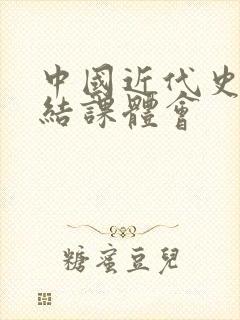 中國近代史
結課體會
糖蜜豆兒